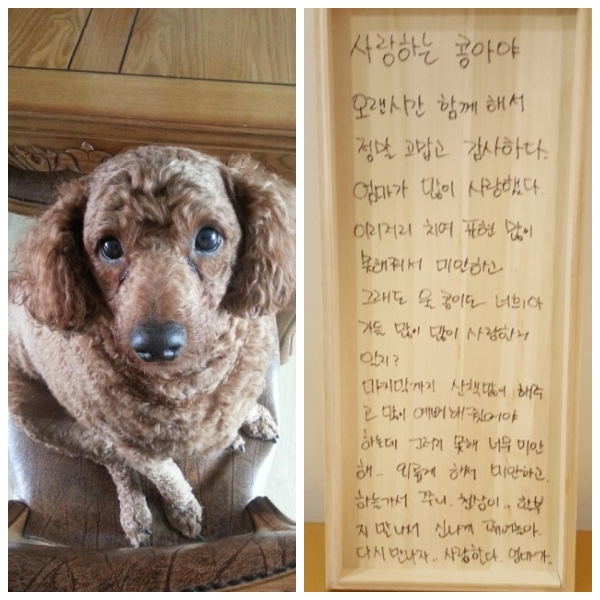 사랑하는 콩아야
오랜시간 함께 해서
정말 고맙고 감사하다..
엄마가 많이 사랑했다.
이리저리 치여 표현 많이
못해줘서 미안하고..
그래도 울 콩이도 너희아
가들 많이 많이 사랑한거
알지?
마지막까지 산책많이 해주
고 많이 예뻐해줬어야
하는데 그러지 못해 너무 미안
해.. 외롭게 해서 미안하고.
하늘가서 쭈니. 첨상이.. 할부
지 만나서 신나게 뛰어놀아.
다시 만나자.. 사랑한다. 엄마가..